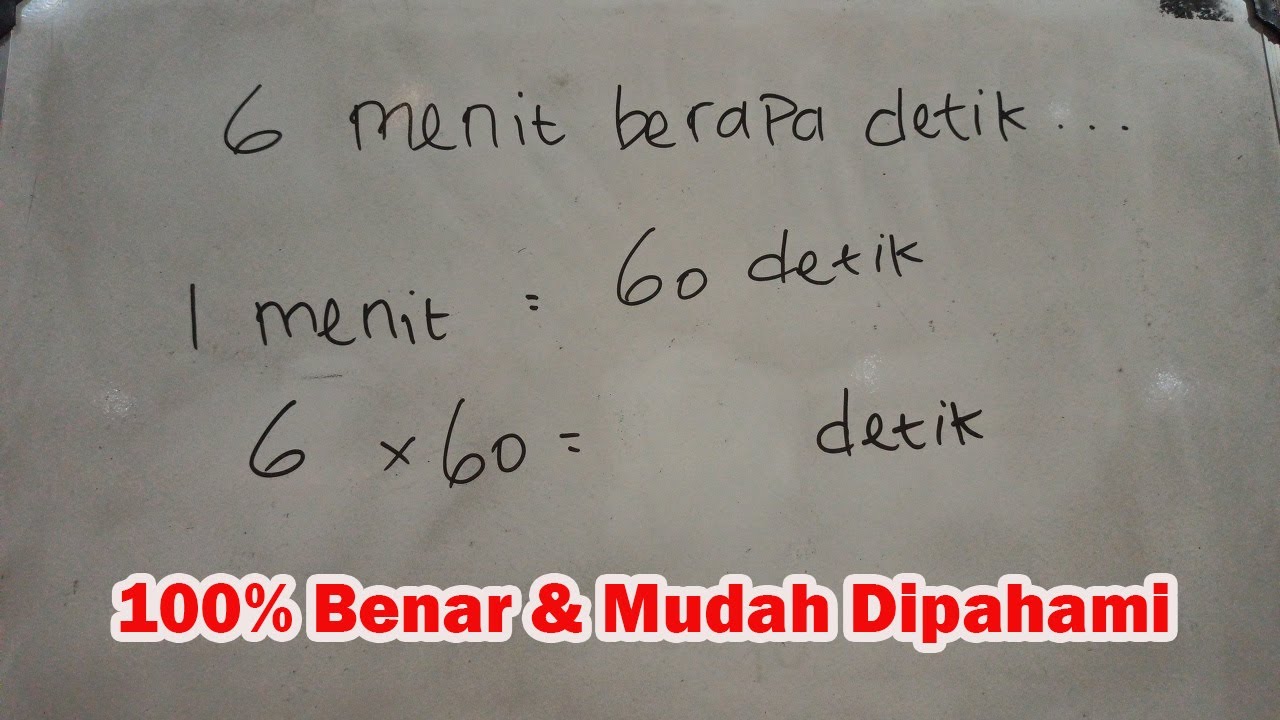 6 menit berapa detik...
1 menit = 60 detik
6 × 60 = detik
100% Benar & Mudah Dipahami